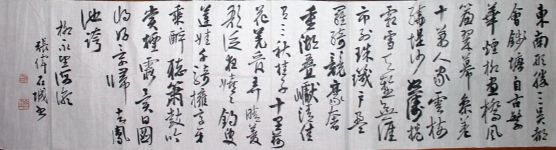 東南形勝三吳都
會錢塘自古繁
華煙柳畫橋風
簾翠幕參差
十萬人家雲樹
繞堤沙怒濤捲
霜雪天塹無涯
市列珠璣戶盈
羅綺競豪奢
重湖疊巘清佳
有三秋桂子十里荷
花羌管弄晴菱
歌泛夜嬉嬉釣叟
蓮娃千騎擁高牙
乘醉聽簫鼓吟
賞煙霞異日圖
將好景歸去鳳
池誇
柳永望海潮